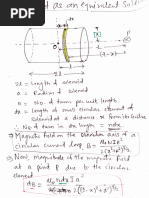 as an equivalent Sol
a
O
P
x
(r-x)
r
2l
2l = Length of solenoid
a = Radius of solenoid
n = No. of turns per unit length
dx = Length of small circular element of
solenoid at a distance x from its centre
No. of turn in dx length = ndx
Magnetic field on the axis of a
circular current loop B =
Now, magnitude of the magnetic field
at a point P due to the circular
element
dB =